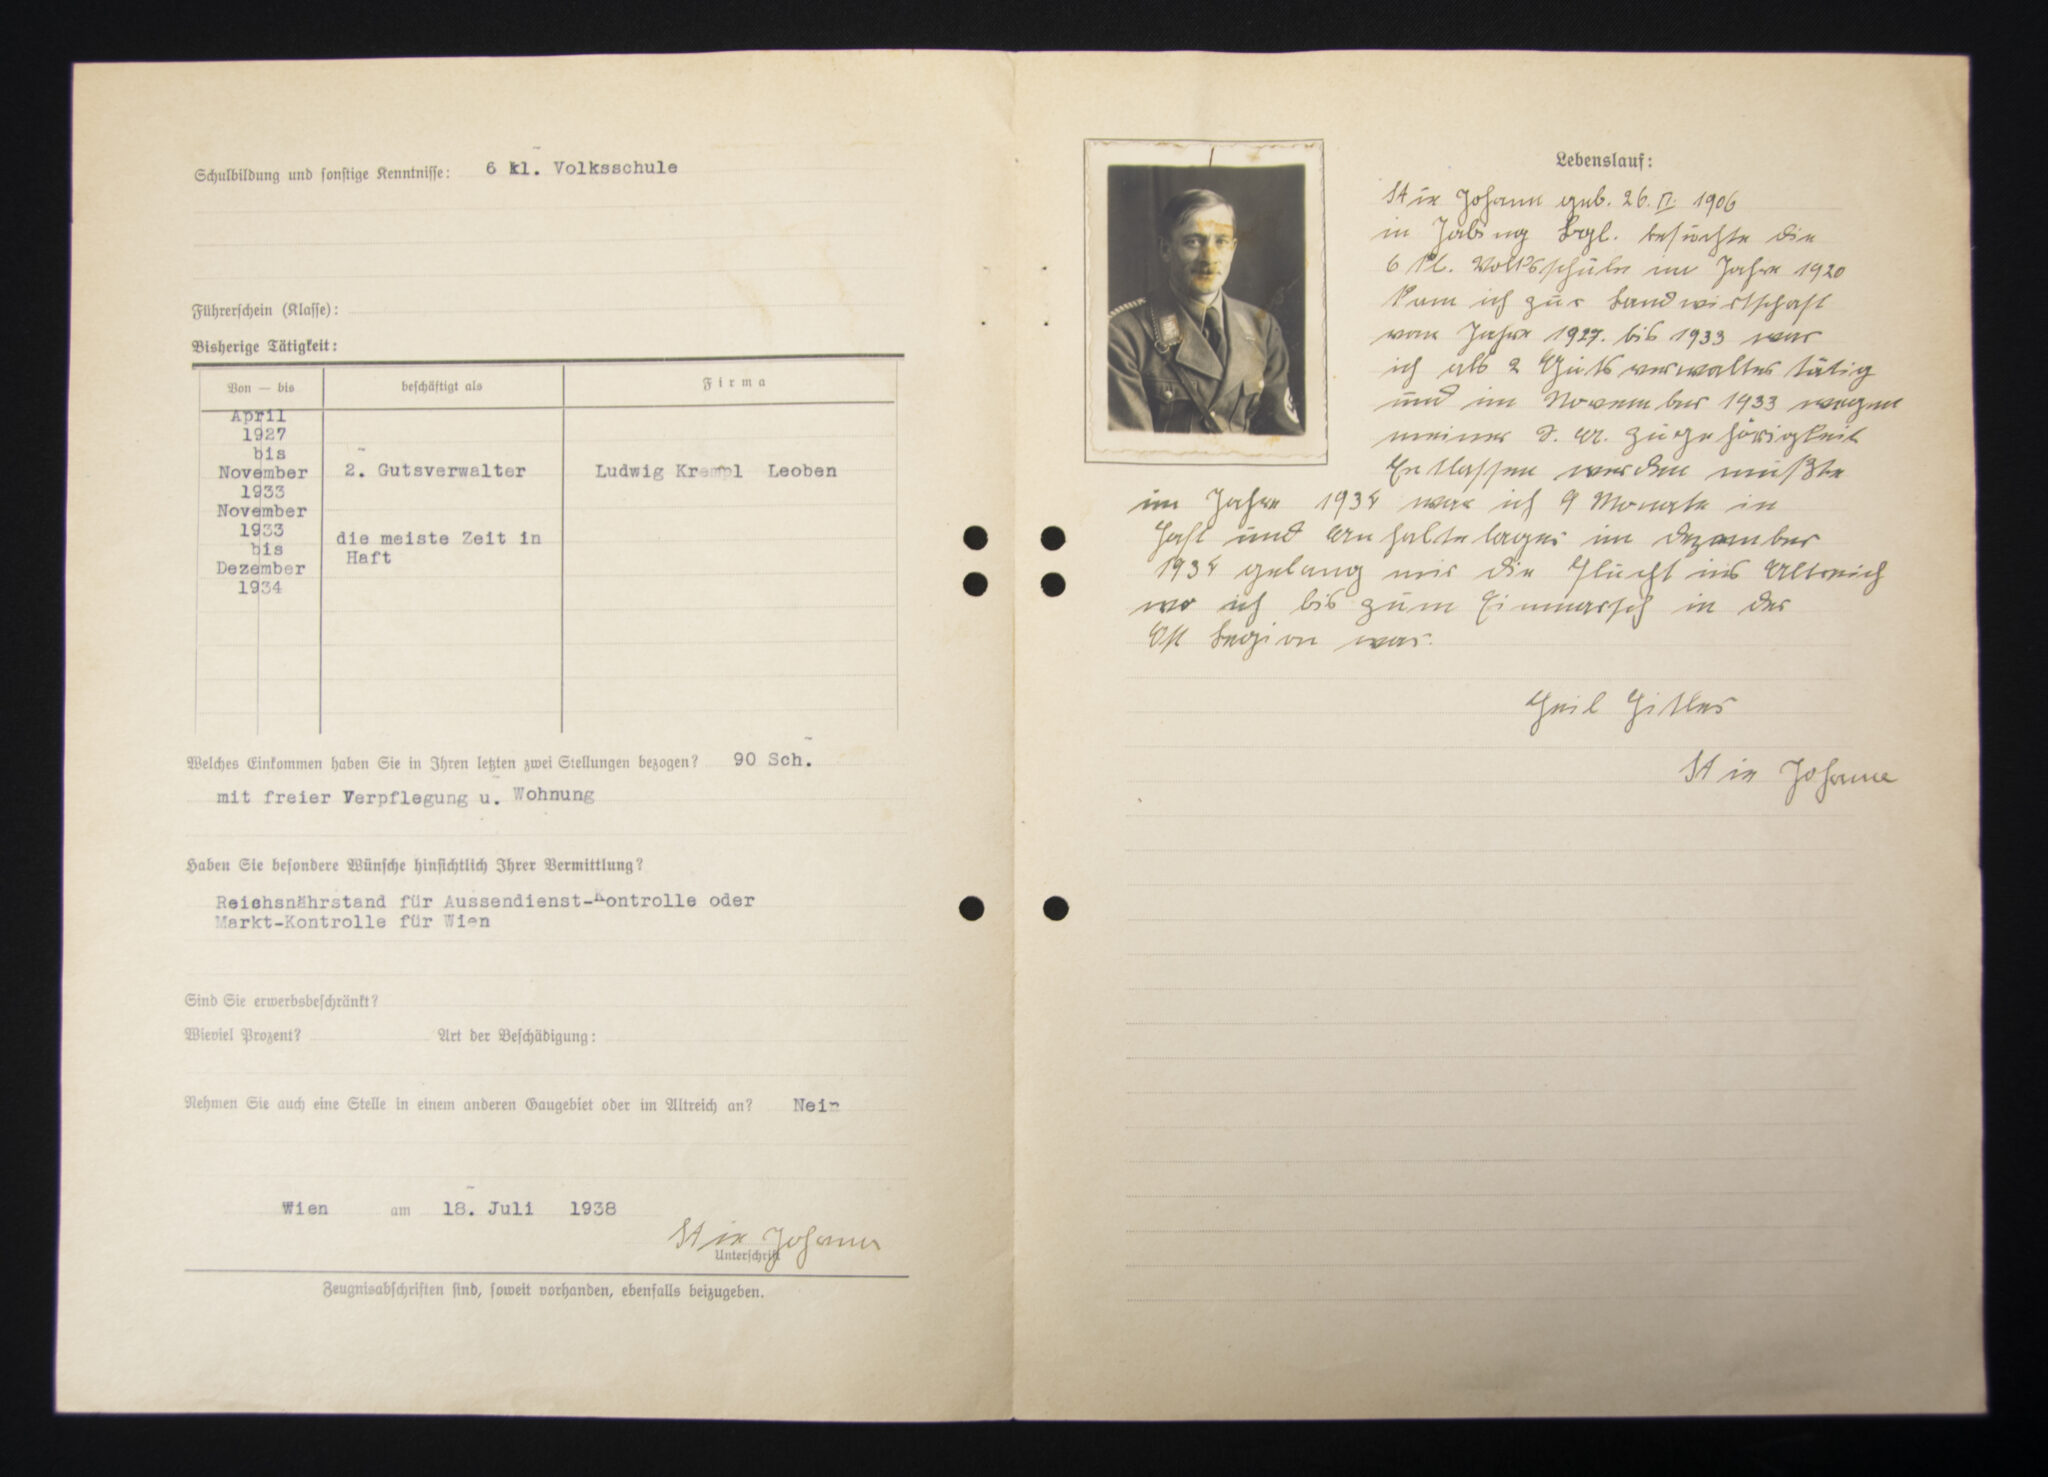 Schulbildung und sonstige Kenntnisse: 6 kl. Volksschule
Führerschein (Klasse):
Bisherige Tätigkeit:
Von — bis beschäftigt als Firma
April
1927
bis
November 2. Gutsverwalter Ludwig Krempl Leoben
1933
November
1933
bis die meiste Zeit in
Dezember Haft
1934
Welches Einkommen haben Sie in Ihren letzten zwei Stellungen bezogen? 90 Sch.
mit freier Verpflegung u. Wohnung
Haben Sie besondere Wünsche hinsichtlich Ihrer Vermittlung?
Reichsnährstand für Aussendienst-Kontrolle oder
Markt-Kontrolle für Wien
Sind Sie erwerbsbeschränkt?
Wieviel Prozent? Art der Beschädigung:
Nehmen Sie auch eine Stelle in einem anderen Gaugebiet oder im Altreich an? Nein
Wien am 18. Juli 1938
Johann
Unterschrift
Zeugnisabschriften sind, soweit vorhanden, ebenfalls beizugeben.
Lebenslauf:
Johann geb. 26. 1906
in Jabing Bgl. besuchte die
6 Kl. Volksschule im Jahre 1920
kam ich zur Landwirtschaft
vom Jahre 1927. bis 1933 war
ich als 2 Gutsverwalter tätig
und im November 1933 wegen
meiner S. A. zugehörigkeit
Entlassen werden mußte
im Jahre 1934 war ich 9 Monate in
Haft und Anhaltelager im Dezember
1934 gelang mir die Flucht ins Altreich
wo ich bis zum Einmarsch in der
Öst Legion war.
Heil Hitler
Johann